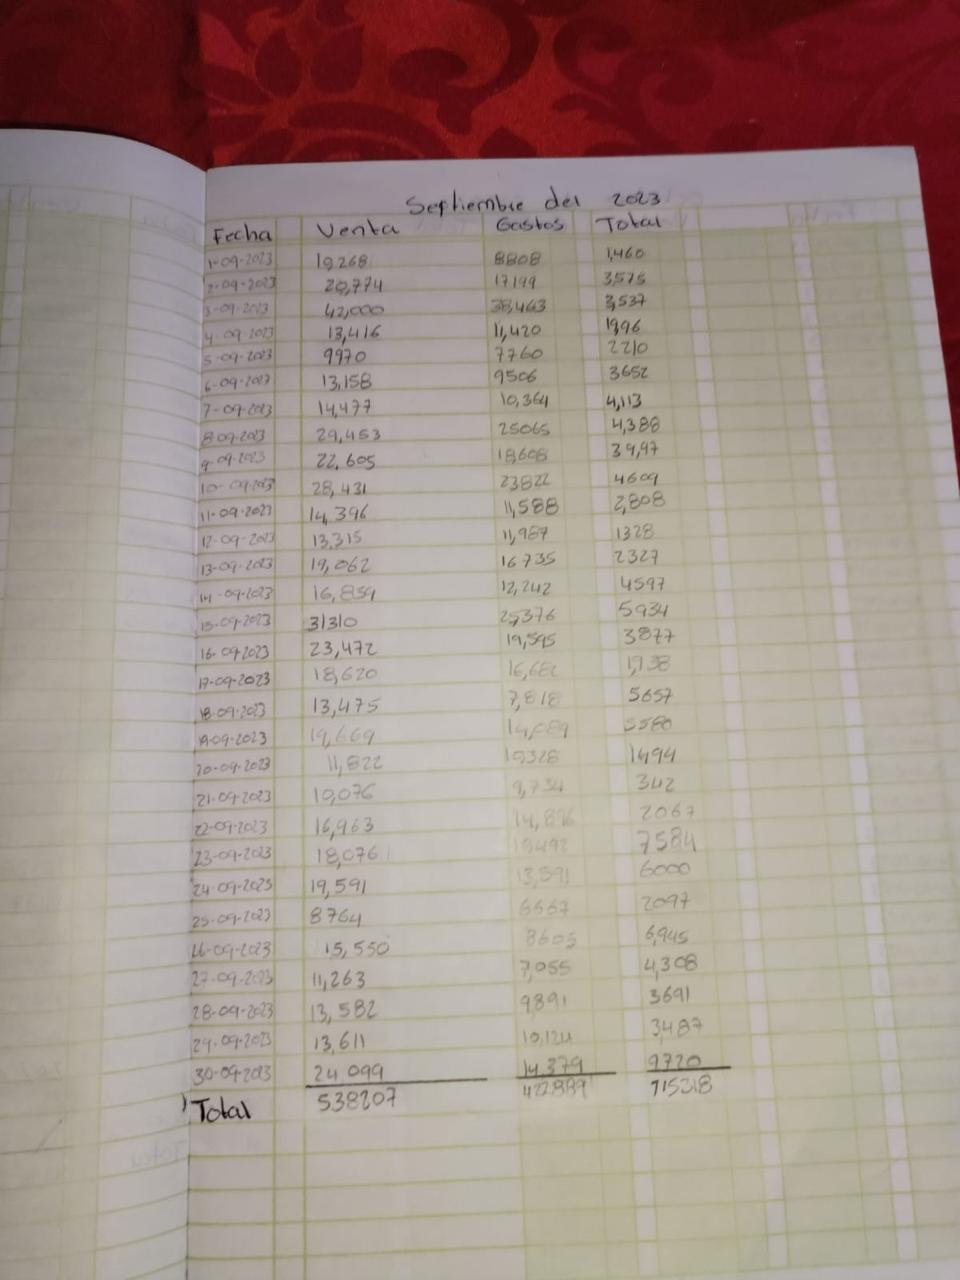 Septiembre del 2023
Fecha Venta Gastos Total
1-09-2023 10,268 8808 1,460
2-09-2023 20,774 17199 3,575
3-09-2023 42,000 38,463 3,537
4-09-2023 13,416 11,420 1996
5-09-2023 9970 7760 2210
6-09-2023 13,158 9506 3652
7-09-2023 14,477 10,364 4,113
8-09-2023 29,453 25065 4,388
9-09-2023 22,605 18,608 39,97
10-09-2023 28,431 23822 4609
11-09-2023 14,396 11,588 2,808
12-09-2023 13,315 11,987 1328
13-09-2023 19,062 16735 2327
14-09-2023 16,859 12,242 4597
15-09-2023 31310 25,376 5934
16-09-2023 23,472 19,595 3877
17-09-2023 18,620 16,682 1,938
18-09-2023 13,475 7,818 5657
19-09-2023 19,669 14,089 5580
20-09-2023 11,822 10328 1,494
21-09-2023 10,076 9,734 342
22-09-2023 16,963 14,896 2067
23-09-2023 18,076 10492 7584
24-09-2023 19,591 13,591 6000
25-09-2023 8764 6667 2097
26-09-2023 15,550 8605 6,945
27-09-2023 11,263 7,055 4,308
28-09-2023 13,582 9891 3691
29-09-2023 13,611 10,124 3,487
30-09-2023 24,099 14,379 9720
Total 538207 422889 115318